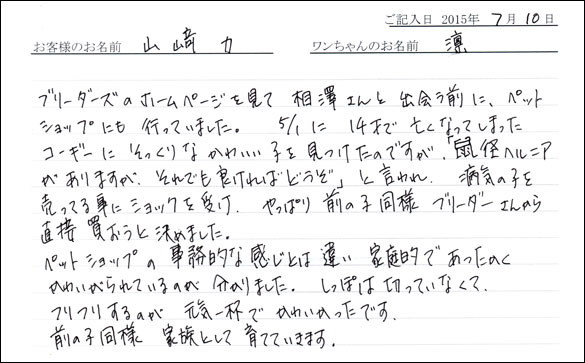 ご記入日 2015年 7月 10日
お客様のお名前 山﨑 力 ワンちゃんのお名前 凛
ブリーダーズのホームページを見て 相澤さんと 出会う前に、ペット
ショップにも 行っていました。 5/1に 14才で 亡くなってしまった
コーギーに そっくりな かわいい子を 見つけたのですが、「鼠径ヘルニア
がありますが、それでも良ければどうぞ」と 言われ、 病気の子を
売ってる事に ショックを 受け、 やっぱり 前の子同様 ブリーダーさんから
直接 買おうと 決めました。
ペットショップの 事務的な 感じとは 違い 家庭的で あったかく
かわいがられているのが 分かりました。 しっぽは 切っていなくて、
フリフリするのが 元気一杯で かわいかったです。
前の子同様、 家族として 育てていきます。